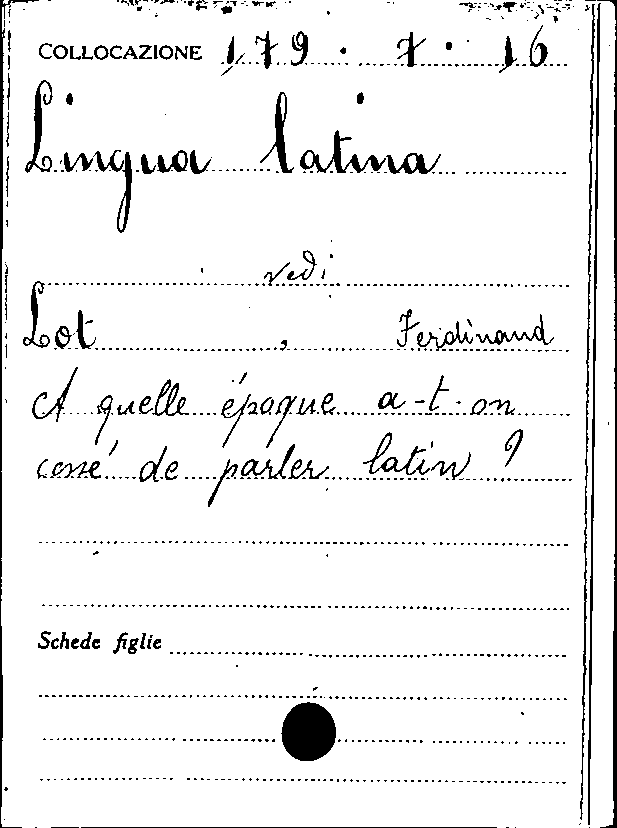 COLLOCAZIONE 179 . 7 . 16
Lingua latina
vedi
Lot , Ferdinand
A quelle époque a-t-on
cessé de parler latin ?
Schede figlie